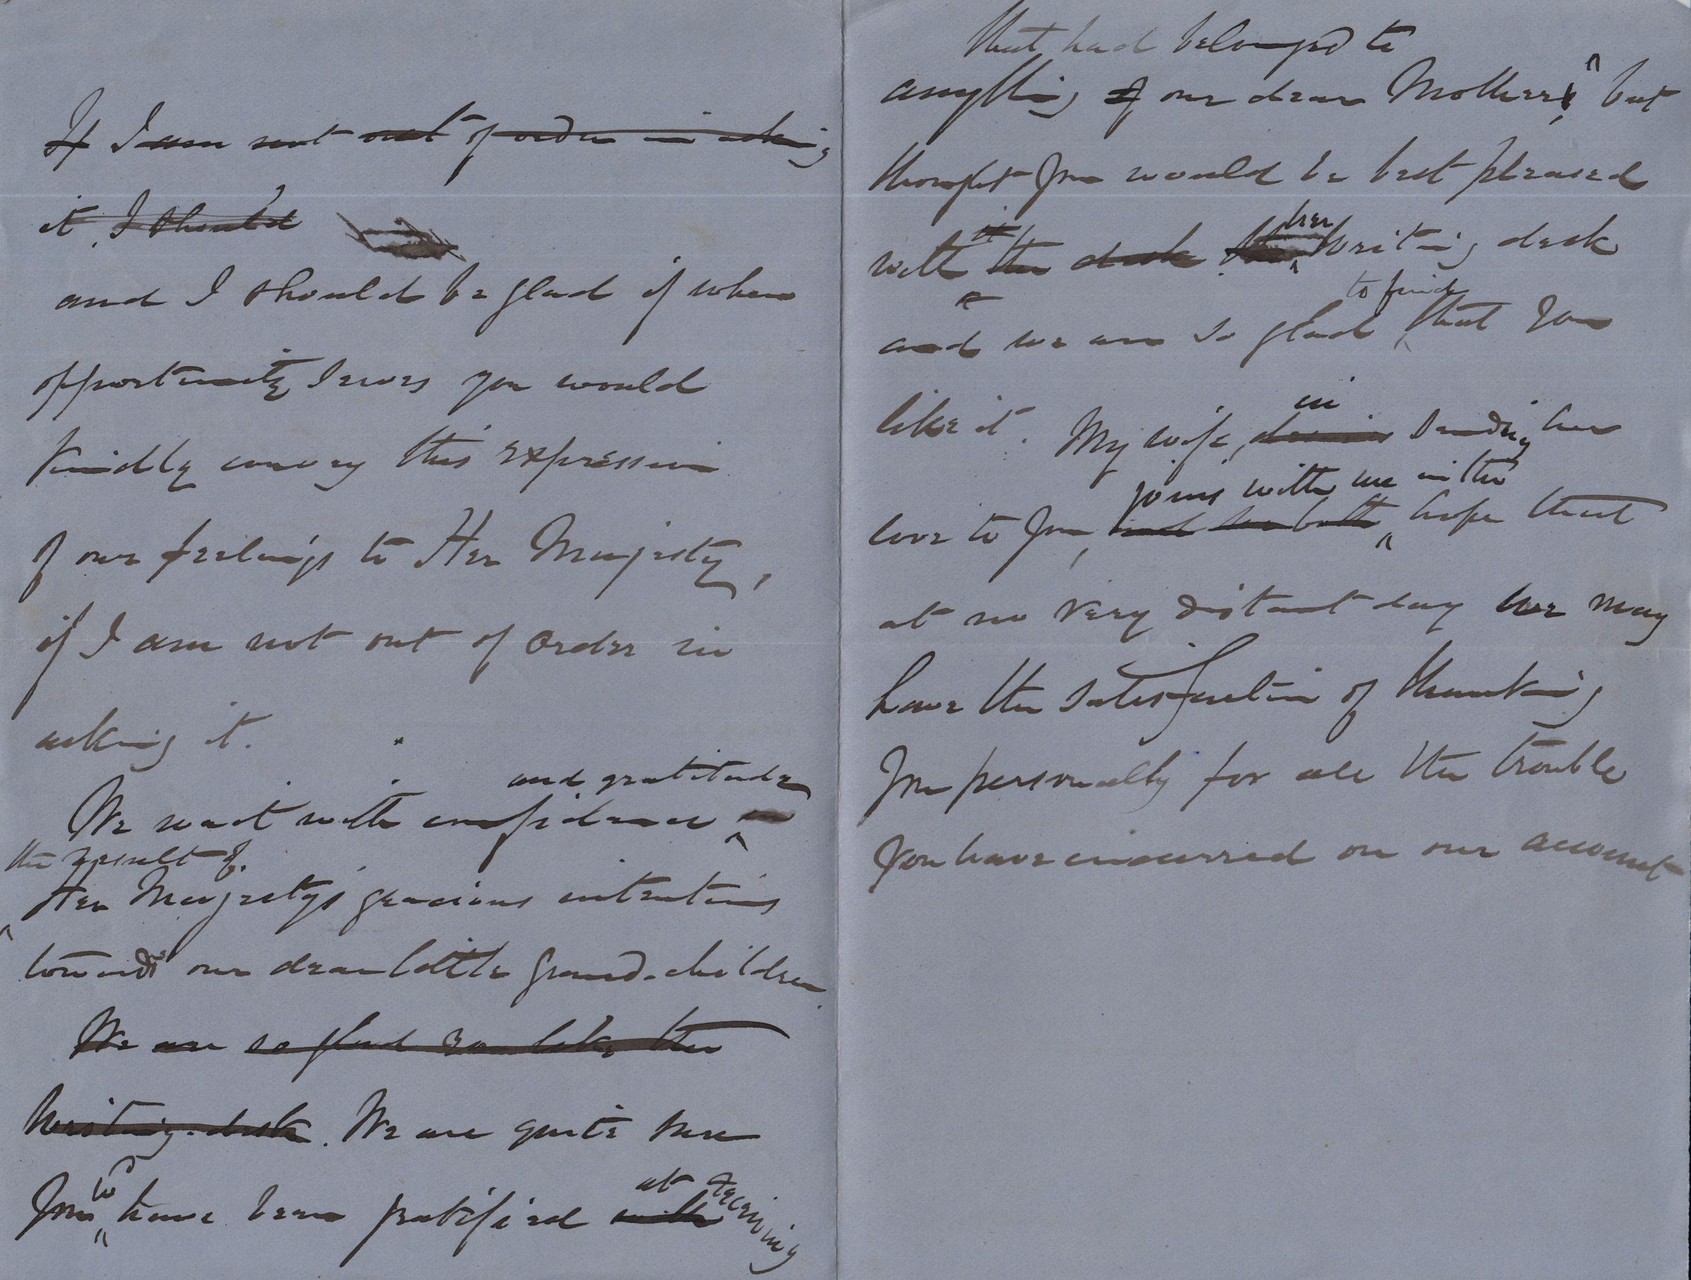 If I am not out of order in asking
it, I should
and I should be glad if when
opportunity serves you would
kindly convey this expression
of our feelings to Her Majesty,
if I am not out of order in
asking it.
and gratitude
We wait with confidence
the result of
Her Majesty's gracious intentions
towards our dear little grand-children.
We are so glad you like the
writing-desk. We are quite sure
wd at receiving
you have been gratified with
that had belonged to
anything of our dear Mother's, but
thought you would be best pleased
it her
with the desk the writing desk
to find
and we are so glad that you
like it. My wife, in sending her
joins with me in the
love to you, and we both hope that
at no very distant day we may
have the satisfaction of thanking
you personally for all the trouble
you have incurred on our account